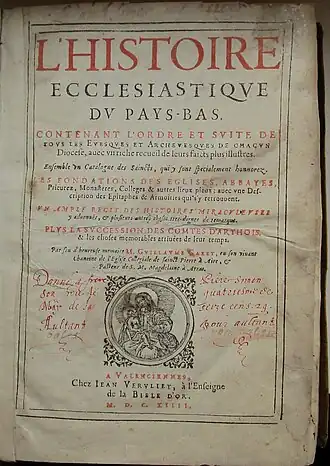 L'HISTOIRE
ECCLESIASTIQVE
DV PAYS-BAS.
CONTENANT L'ORDRE ET SVITE DE
TOVS LES EVESQVES ET ARCHEVESQVES DE CHACVN
Diocese, avec vn riche recueil de leurs faicts plus illustres.
Ensemble vn Catalogue des Saincts, qui y sont specialement honnorez,
LES FONDATIONS DES EGLISES, ABBAYES,
Prieurez, Monasteres, Colleges & autres lieux pieux: avec vne Des-
cription des Epitaphes & Armoiries qui s'y retrouuent.
VN AMPLE RECIT DES HISTOIRES MIRACVLEVSES
y aduenuës, & plusieurs autres choses tres-dignes de remarque.
PLVS LA SVCCESSION DES COMTES D'ARTHOIS,
& les choses memorables arriuées de leur temps.
Par feu d'heureuse memoire M. GVILLAVME GAZET, en son viuant
Chanoine de l'Eglise Collegiale de Sainct Pierre à Aire, &
Pasteur de S. M. Magdelaine à Arras.
A VALENCIENNES,
Chez IEAN VERVLIET, à l'Enseigne
de la BIBLE D'OR.
M. D. C. XIIII.